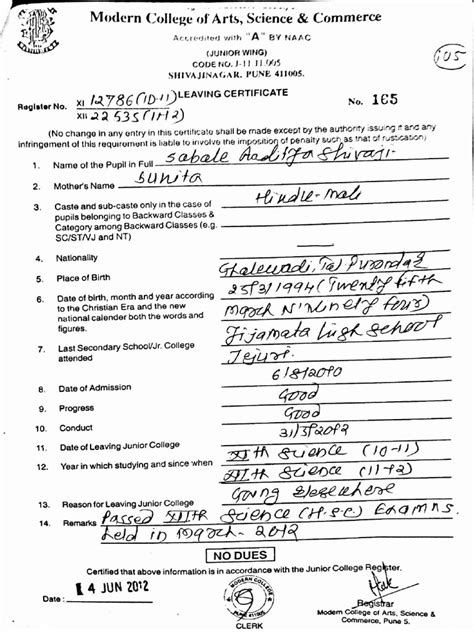 Modern College of Arts, Science & Commerce
Accredited with "A" BY NAAC
(JUNIOR WING)
CODE NO. J-11 11.005
SHIVAJINAGAR, PUNE 411005.
105
LEAVING CERTIFICATE
Register No. XI 12786 (10-11)
XII 22535 (11-12)
No. 165
(No change in any entry in this certificate shall be made except by the authority issuing it and any
infringement of this requirement is liable to involve the imposition of penalty such as that of rustication)
1. Name of the Pupil in Full Sabale Aaditya Shivaji
2. Mother's Name Sunita
3. Caste and sub-caste only in the case of
pupils belonging to Backward Classes &
Category among Backward Classes (e.g.
SC/ST/VJ and NT)
Hindu-
4. Nationality
5. Place of Birth
Tal Purandar
6. Date of birth, month and year according
to the Christian Era and the new
national calender both the words and
figures.
25/3/1994 (Twenty fifth
March N'Ninety four)
7. Last Secondary School/Jr. College
attended
Jijamata high school
Jejuri.
8. Date of Admission
6/8/2010
9. Progress
Good
10. Conduct
Good
11. Date of Leaving Junior College
31/5/2012
12. Year in which studying and since when
XIth Science (10-11)
XIIth Science (11-12)
13. Reason for Leaving Junior College
Going Elsewhere
14. Remarks Passed XIIth Science (H.S.C) Examns.
held in March-2012
NO DUES
Certified that above information is in accordance with the Junior College Register.
14 JUN 2012
MODERN COLLEGE
CLERK
Registrar
Modern College of Arts, Science &
Commerce, Pune 5.